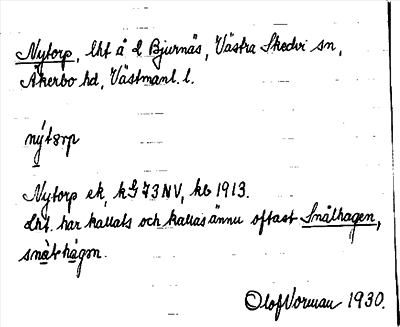 Nytorp, lht å d Bjurnäs, Västra Skedvi sn,
Åkerbo hd, Västmanl. l.
nýtɜrp
Nytorp ek, kG 73 NV, kb 1913.
Lht. har kallats och kallas ännu oftast Snålhagen,
snålhågɜn.
Olof Vorman 1930.